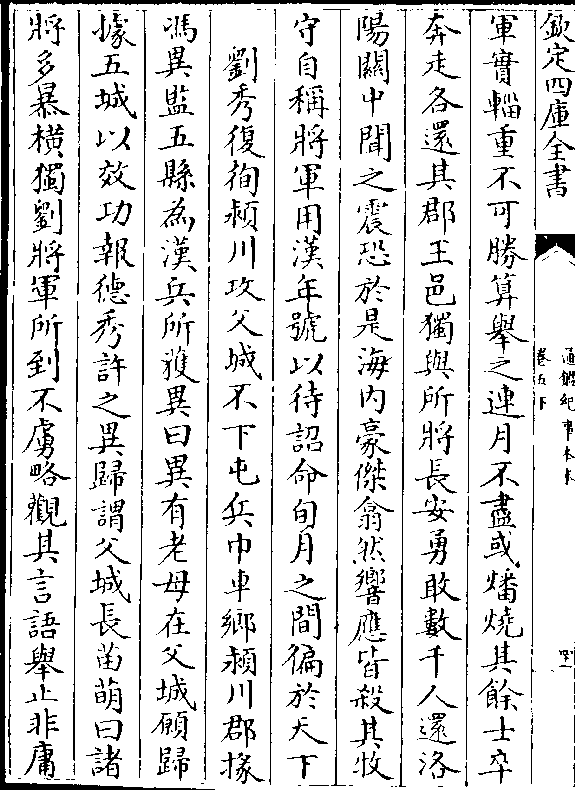 欽定四庫全書
通鑑紀事本末
卷五下
軍實輜重不可勝算舉之連月不盡或燔燒其餘士卒
奔走各還其郡王邑獨與所將長安勇敢數千人還洛
陽關中聞之震恐於是海內豪傑翕然響應皆殺其牧
守自稱將軍用漢年號以待詔命旬月之間徧於天下
劉秀復徇潁川攻父城不下屯兵巾車鄉潁川郡掾
馮異監五縣為漢兵所獲異曰異有老母在父城願歸
據五城以效功報德秀許之異歸謂父城長苗萌曰諸
將多暴橫獨劉將軍所到不虜略觀其言語舉止非庸